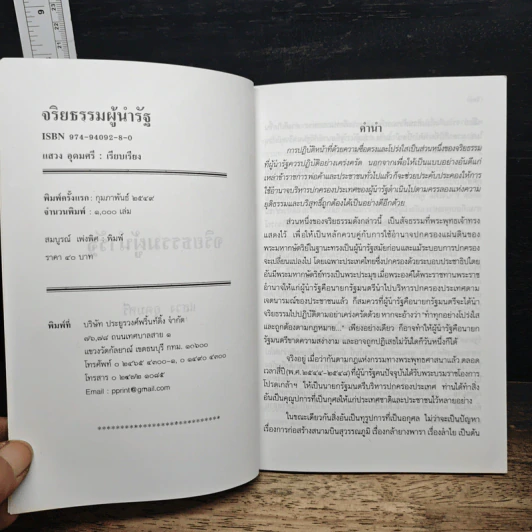 จริยธรรมผู้นำรัฐ
ISBN 974-94092-8-0
แสวง อุดมศรี : เรียบเรียง
พิมพ์ครั้งแรก : กุมภาพันธ์ ๒๕๔๙
จำนวนพิมพ์ : ๑,๐๐๐ เล่ม
สมบูรณ์ เพ่งพิศ : พิมพ์
ราคา ๔๐ บาท
พิมพ์ที่ บริษัท ประยูรวงศ์พริ้นท์ติ้ง จำกัด
๗๖,๘๔ ถนนเทศบาลสาย ๑
แขวงวัดกัลยาณ์ เขตธนบุรี กทม. ๑๐๖๐๐
โทรศัพท์ ๐ ๒๔๖๕ ๔๓๐๐-๑, ๐ ๑๔๙๐ ๔๓๐๐
โทรสาร ๐ ๒๔๗๒ ๑๐๘๕
Email : pprint@gmail.com
คำนำ
การปฏิบัติหน้าที่ด้วยความซื่อตรงและโปร่งใสเป็นส่วนหนึ่งของจริยธรรม
ที่ผู้นำรัฐควรปฏิบัติอย่างเคร่งครัด นอกจากเพื่อให้เป็นแบบอย่างอันดีแก่
เหล่าข้าราชการพ่อค้าและประชาชนทั่วไปแล้ว ก็จะช่วยประคับประคองให้การ
ใช้อำนาจบริหารปกครองประเทศของผู้นำรัฐดำเนินไปตามครรลองแห่งความ
ยุติธรรมและบริสุทธิ์ถูกต้องได้เป็นอย่างดีอีกด้วย
ส่วนหนึ่งของจริยธรรมดังกล่าวนี้ เป็นสัจธรรมที่พระพุทธเจ้าทรง
แสดงไว้ เพื่อให้เป็นหลักควบคู่กับการใช้อำนาจปกครองแผ่นดินของ
พระมหากษัตริย์ในฐานะทรงเป็นผู้นำรัฐสมัยก่อน และแม้ระบอบการปกครอง
จะเปลี่ยนแปลงไป โดยเฉพาะประเทศไทยซึ่งปกครองด้วยระบอบประชาธิปไตย
อันมีพระมหากษัตริย์ทรงเป็นประมุข เมื่อพระองค์ได้พระราชทานพระราช
อำนาจให้แก่ผู้นำรัฐคือนายกรัฐมนตรีนำไปบริหารปกครองประเทศตาม
เจตนารมณ์ของประชาชนแล้ว ก็สมควรที่ผู้นำรัฐคือนายกรัฐมนตรีจะได้นำ
จริยธรรมไปปฏิบัติตามอย่างเคร่งครัดด้วย หากจะอ้างว่า "ทำทุกอย่างโปร่งใส
และถูกต้องตามกฎหมาย..." เพียงอย่างเดียว ก็อาจทำให้ผู้นำรัฐคือนายก
รัฐมนตรีขาดความสง่างาม และอาจถูกปฏิเสธไม่วันใดก็วันหนึ่งก็ได้
จริงอยู่ เมื่อว่ากันตามกฎแห่งกรรมทางพระพุทธศาสนาแล้ว ตลอด
เวลาสี่ปี (พ.ศ. ๒๕๔๔-๒๕๔๘) ที่ผู้นำรัฐคนปัจจุบันได้รับพระบรมราชโองการ
โปรดเกล้าฯ ให้เป็นนายกรัฐมนตรีบริหารปกครองประเทศ ท่านได้ทำสิ่ง
อันเป็นคุณูปการที่เป็นกุศลให้แก่ประเทศชาติและประชาชนไว้หลายอย่าง
ในขณะเดียวกันสิ่งอันเป็นทุรูปการที่เป็นอกุศล ไม่ว่าจะเป็นปัญหา
เรื่องการก่อสร้างสนามบินสุวรรณภูมิ เรื่องกล้ายางพารา เรื่องลำไย เป็นต้น